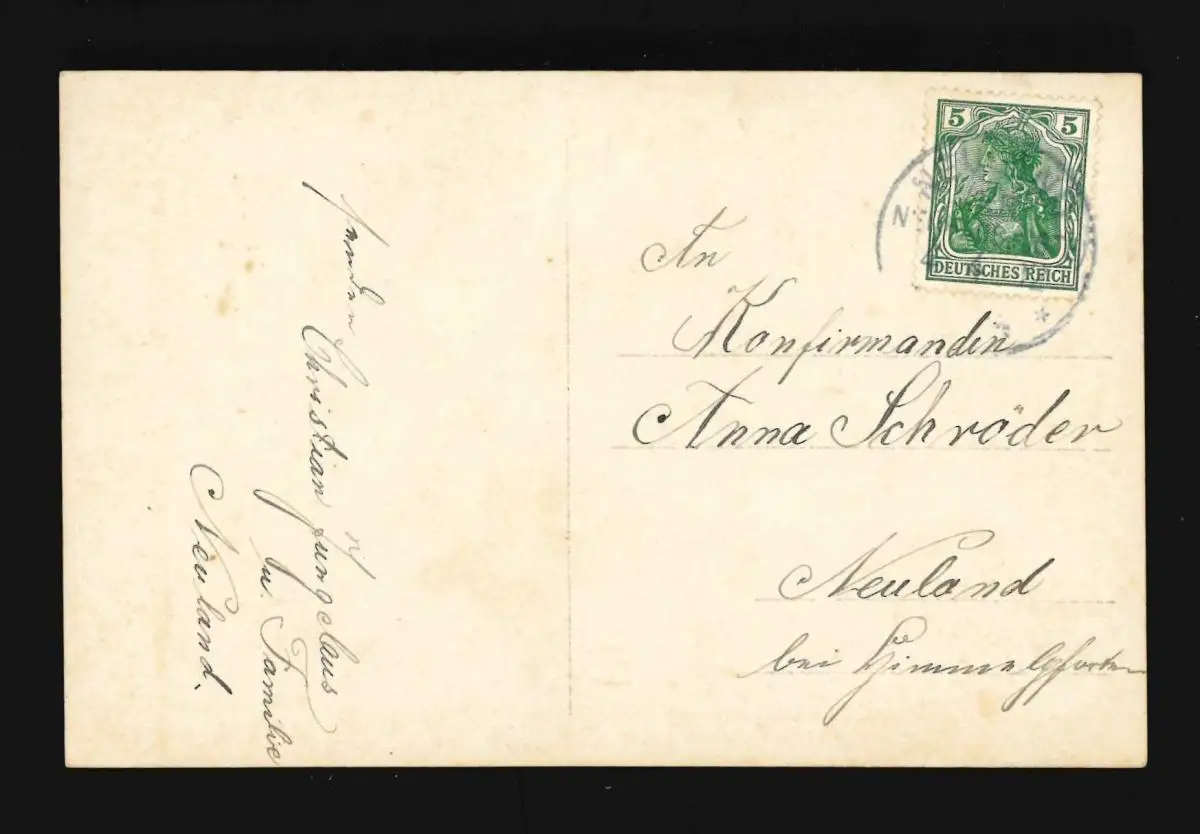 senden dir
Christian Jungclaus
u. Familie
Neuland.
5 5
DEUTSCHES REICH
An
Konfirmandin
Anna Schröder
Neuland
bei Himmelpforten